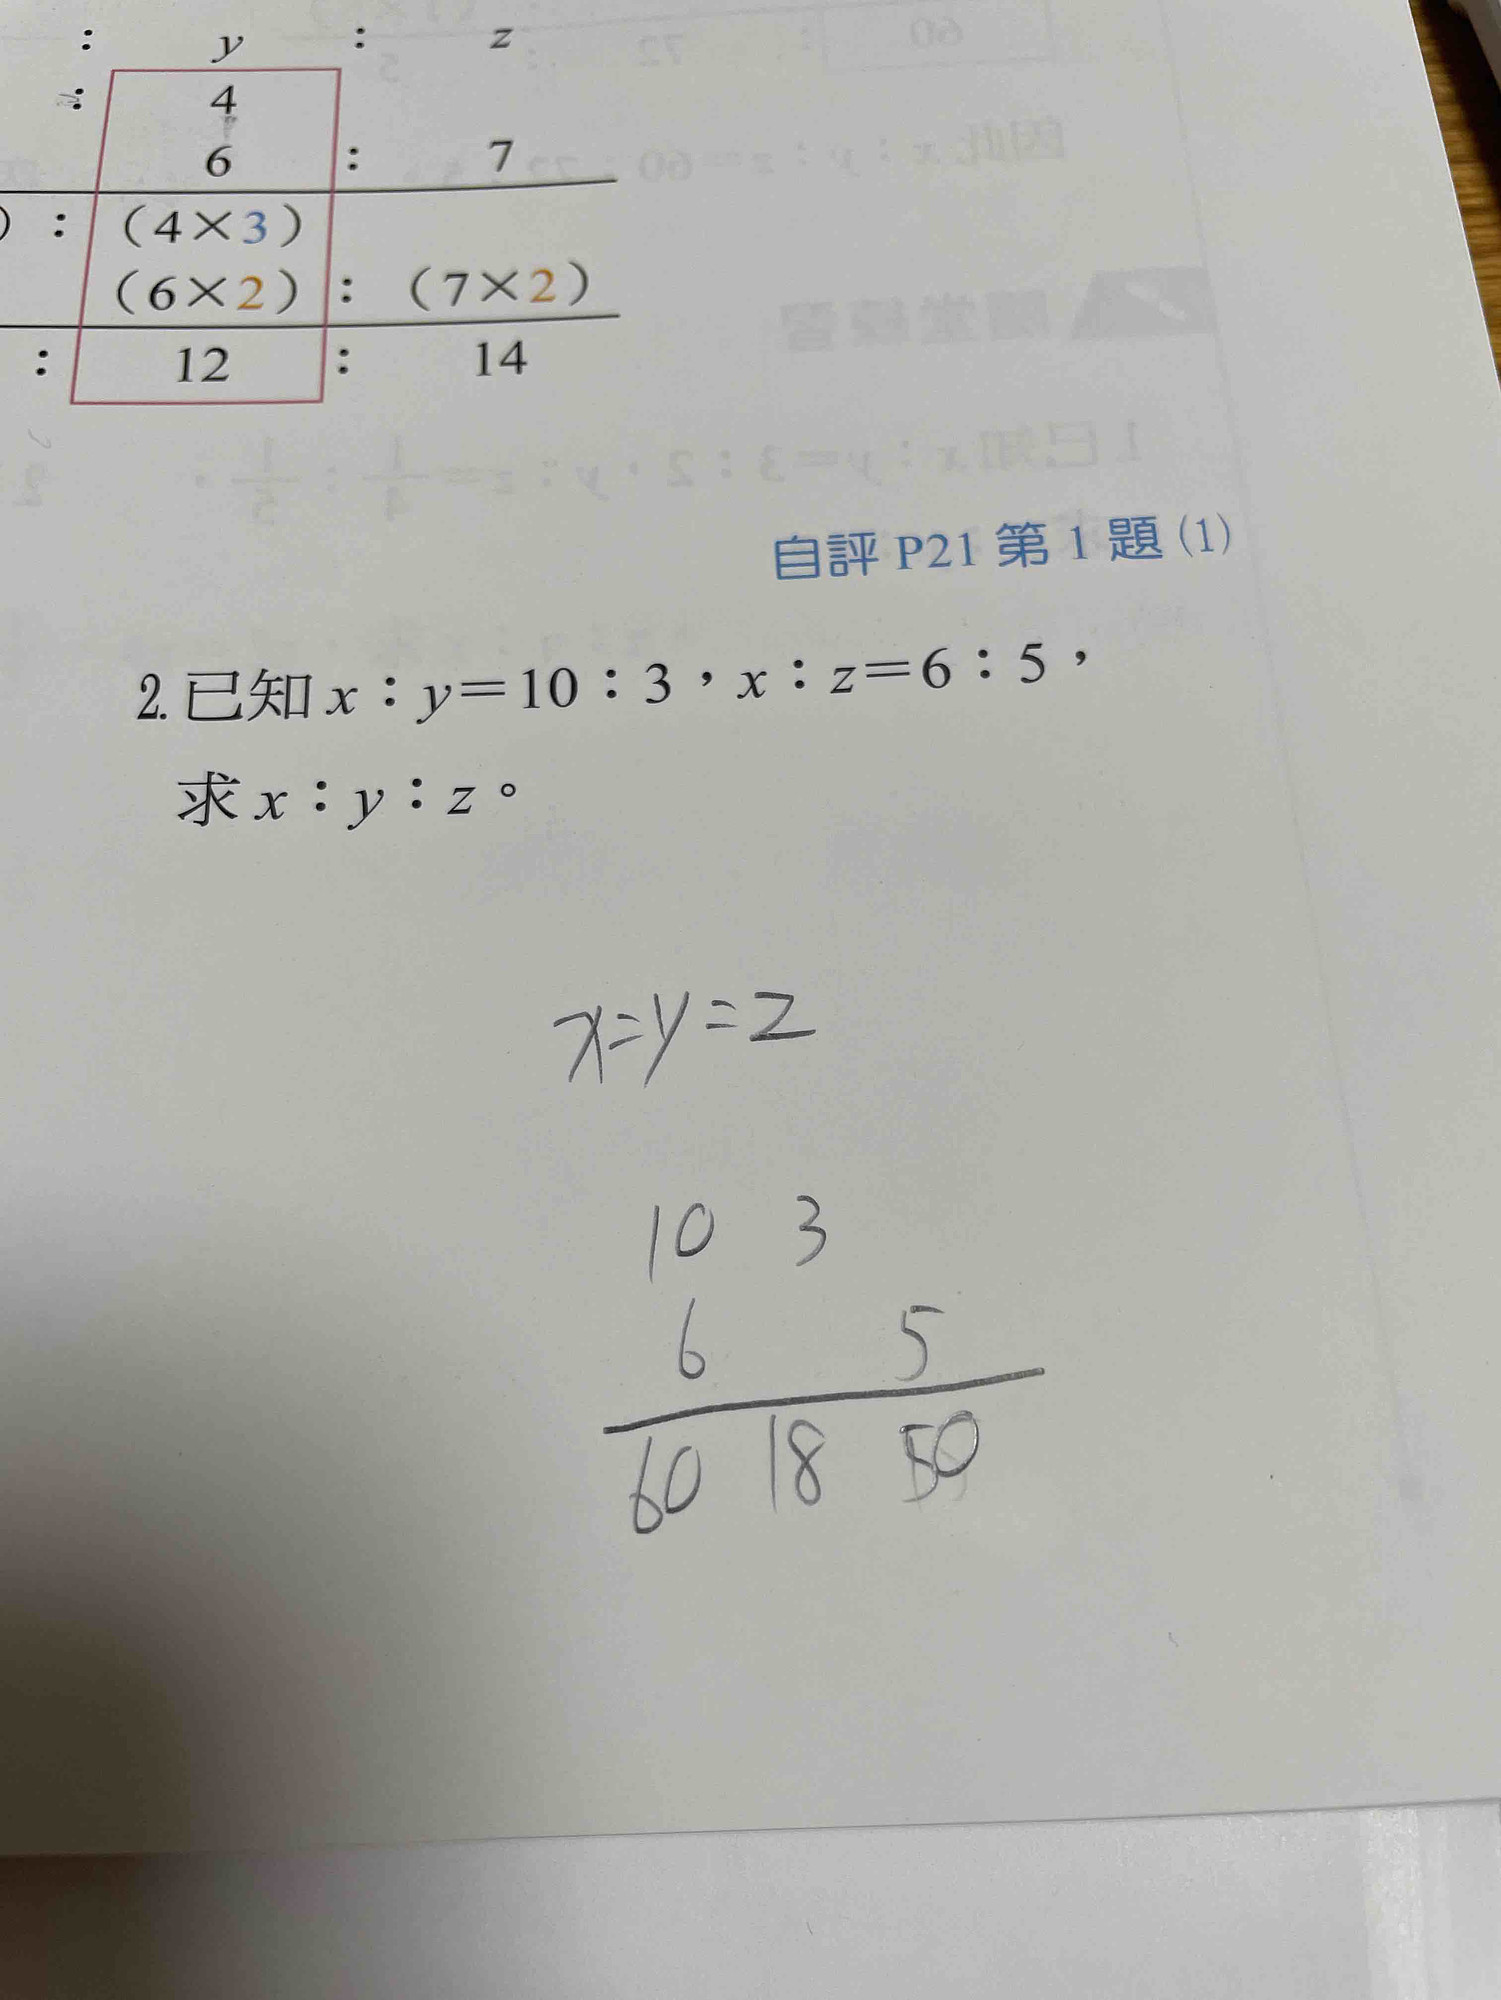 ： y ： z
： 4
6 ： 7
) ： (4×3)
(6×2) ： (7×2)
： 12 ： 14
自評 P21 第 1 題 (1)
2. 已知 x：y=10：3，x：z=6：5，
求 x：y：z。
x=y=z
10 3
6 5
60 18 50